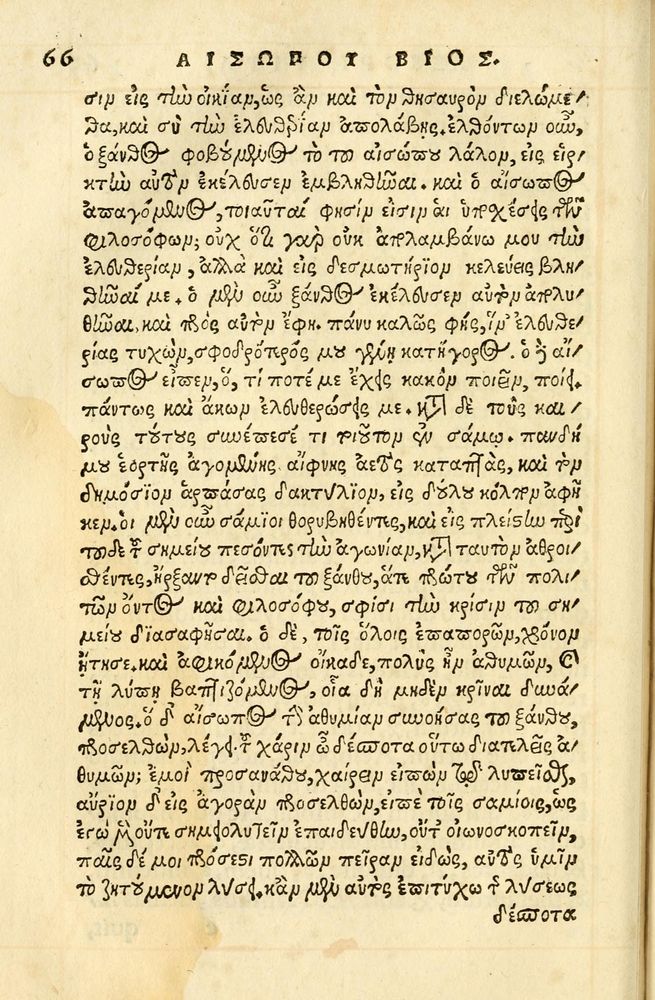 66 ΑΙΣΩΠΟΥ ΒΙΟΣ.
σιν εἰς τὴν οἰκίαν, ὡς ἂν καὶ τὸν θησαυρὸν διελώμε/
θα, καὶ σὺ τὴν ἐλευθερίαν ἀπολάβῃς. ἐλθόντων οὖν,
ὁ ξάνθος φοβούμενος τὸ τοῦ αἰσώπου λάλον, εἰς εἱρ/
κτὴν αὐτὸν ἐκέλευσεν ἐμβληθῆναι. καὶ ὁ αἴσωπος
ἀπαγόμενος, τοιαῦταί φησιν εἰσιν αἱ ὑποσχέσεις τῶν
φιλοσόφων; οὐχ ὅτι γὰρ οὐκ ἀπολαμβάνω μου τὴν
ἐλευθερίαν, ἀλλὰ καὶ εἰς δεσμωτήριον κελεύεις βλη/
θῆναί με. ὁ μὲν οὖν ξάνθος ἐκέλευσεν αὐτὸν ἀπολυ/
θῆναι, καὶ πρὸς αὐτὸν ἔφη. πάνυ καλῶς φῂς, ἵν' ἐλευθε/
ρίας τυχὼν, σφοδρότερός μου γένῃ κατήγορος. ὁ δὲ αἴ/
σωπος εἶπεν, ὅ, τί ποτέ με ἔχεις κακὸν ποιεῖν, ποίει.
πάντως καὶ ἄκων ἐλευθερώσεις με. κατὰ δὲ τοὺς και/
ροὺς τούτους συνέπεσέ τι τοιοῦτον ἐν σάμῳ. πανδή
μου ἑορτῆς ἀγομένης αἴφνης ἀετὸς καταπτὰς, καὶ τὸν
δημόσιον ἁρπάσας δακτύλιον, εἰς δούλου κόλπον ἀφῆ
κεν. οἱ μὲν οὖν σάμιοι θορυβηθέντες, καὶ εἰς πλείστην περὶ
τοῦδε τοῦ σημείου πεσόντες τὴν ἀγωνίαν, κατὰ ταυτὸν ἀθροι/
σθέντες, ἤρξαντο δεῖσθαι τοῦ ξάνθου, ἅτε πρώτου τῶν πολι/
τῶν ὄντος καὶ φιλοσόφου, σφίσι τὴν κρίσιν τοῦ ση/
μείου διασαφῆσαι. ὁ δὲ, τοῖς ὅλοις ἐπαπορῶν, χρόνον
ᾔτησε. καὶ ἀφικόμενος οἴκαδε, πολὺς ἦν ἀθυμῶν, καὶ
τῇ λύπῃ βαπτιζόμενος, οἷα δὴ μηδὲν κρῖναι δυνά/
μενος. ὁ δ' αἴσωπος τὴν ἀθυμίαν συνοήσας τοῦ ξάνθου,
προσελθὼν, λέγει. τοῦ χάριν ὦ δέσποτα οὕτω διατελεῖς ἀ/
θυμῶν; ἐμοὶ προσανάθου, χαίρειν εἰπὼν τῷ λυπεῖσθαι,
αὔριον δ' εἰς ἀγορὰν προσελθὼν, εἰπὲ τοῖς σαμίοις, ὡς
ἐγὼ μὲν οὔτε σημειολυτεῖν ἐπαιδεύθην, οὔτ' οἰωνοσκοπεῖν,
παῖς δέ μοι πρόσεστι πολλῶν πεῖραν εἰδὼς, αὐτὸς ὑμῖν
τὸ ζητούμενον λύσει. κἂν μὲν αὐτὸς ἐπιτύχω τῆς λύσεως
δέσποτα